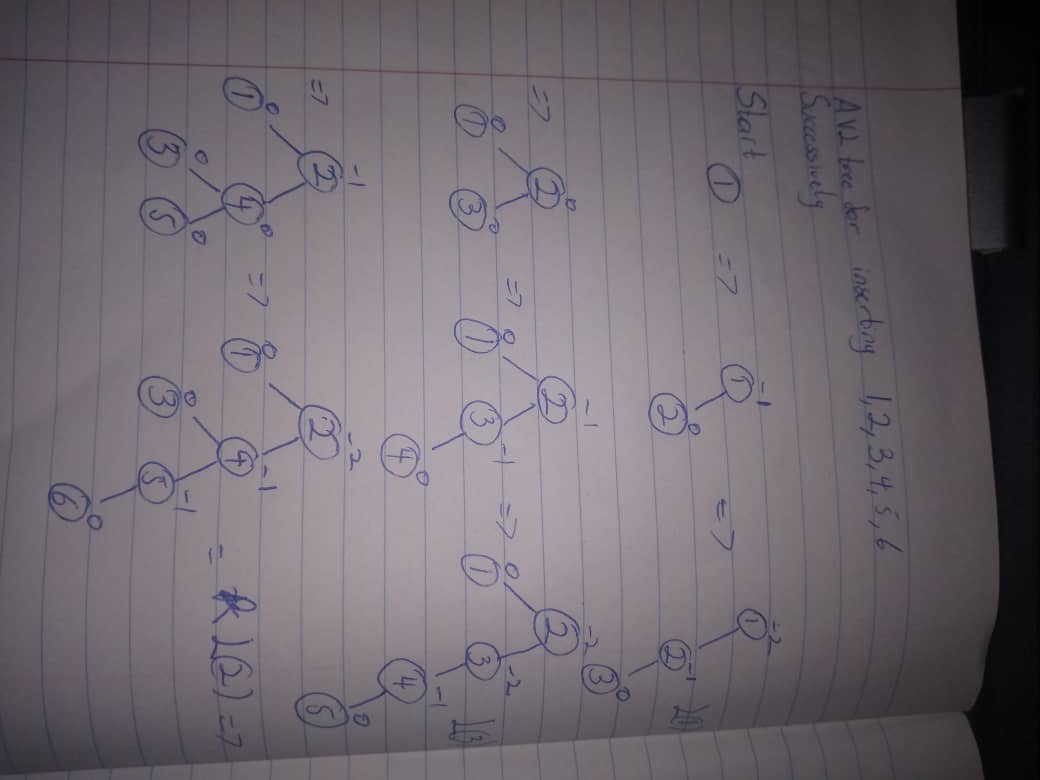 AVL tree for inserting 1,2,3,4,5,6
Successively
Start ① => ①-1 ②0 => ①-2 ②-1 ③0 L(1)
=> ②0 ①0 ③0 => ②-1 ①0 ③-1 ④0 => ②-2 ①0 ③-2 ④-1 ⑤0 L(3)
=> ②-1 ①0 ④0 ③0 ⑤0 => ②-2 ①0 ④-1 ③0 ⑤-1 ⑥0 = L(2) =>